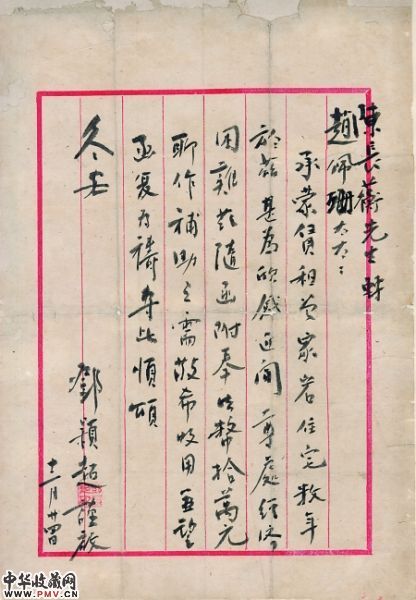 陳長蘅先生
趙佩珊太太：
承蒙賃租曾家岩住宅數年
於茲甚為欣感近聞尊處經濟
困難茲隨函附奉法幣拾萬元
聊作補助之需敬希收用並望
函复為禱專此順頌
冬安
鄧穎超謹啟
月廿四日
中华收藏网
www.PMV.cn